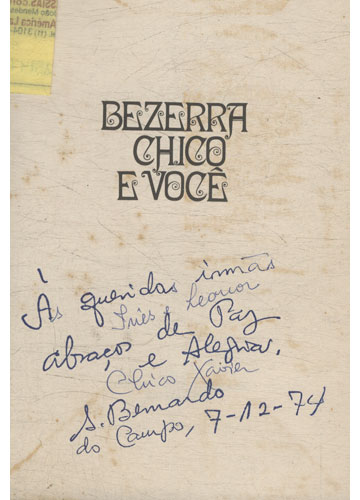 SSIAS COM
João Mendes
América La
R. (11) 3104
BEZERRA
CHICO
E VOCÊ
Às queridas irmãs
Inês e Leonor
abraços de Paz
e Alegria,
Chico Xavier
S. Bernardo
do Campo, 7-12-74